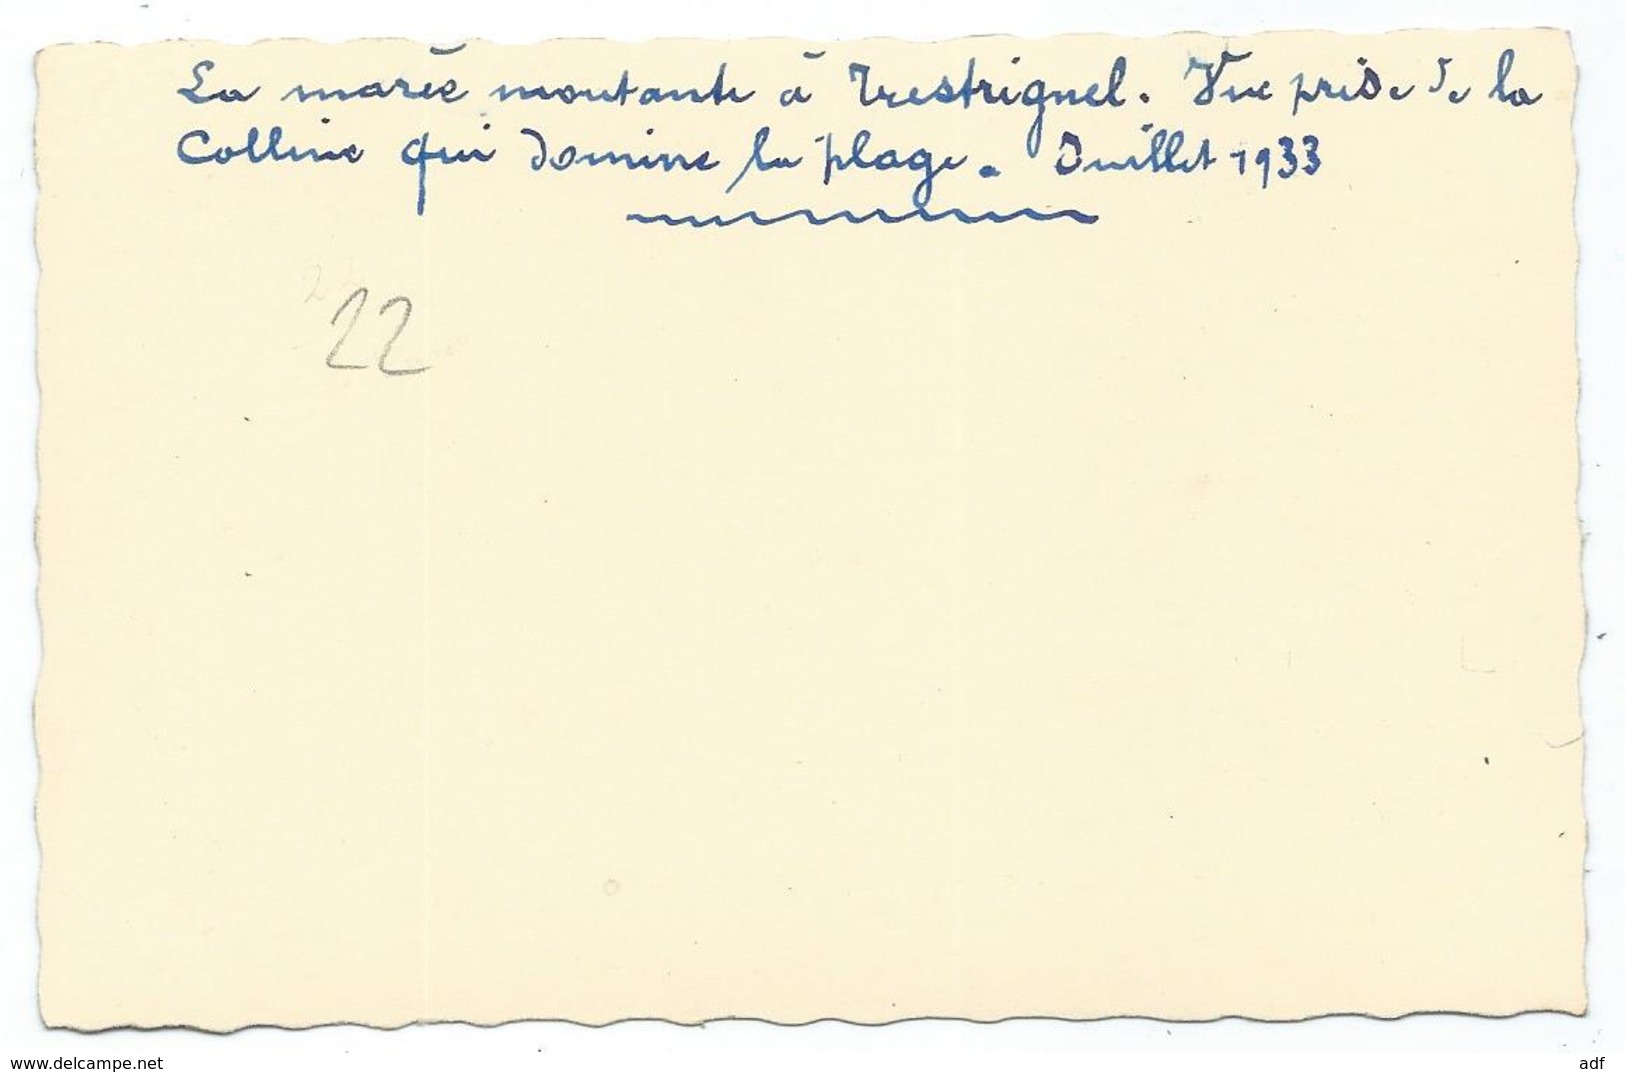 La marée montante à Trestrignel. Vue prise de la
Colline qui domine la plage. Juillet 1933
22
www.delcampe.net
adf